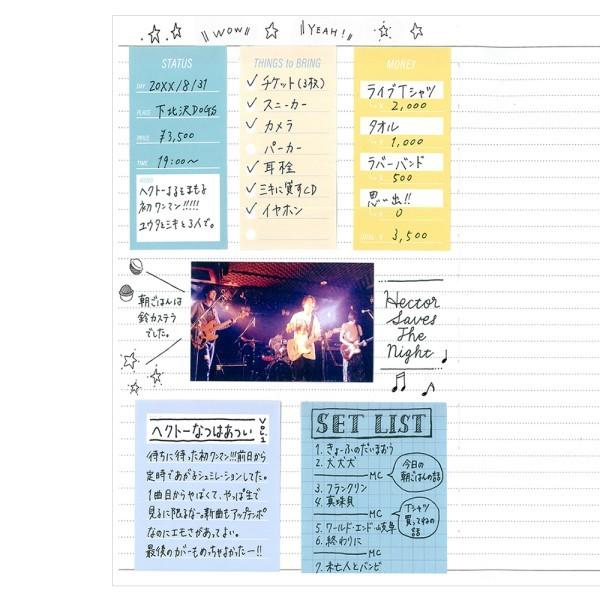 WOW
YEAH!
STATUS
DAY 20XX/8/31
PLACE 下北沢DOGS
PRICE ¥3,500
TIME 19:00〜
MEMO
ヘクトーよるをまもる
初ワンマン!!!!!
ユウタとミキと3人で。
THINGS to BRING
チケット(3枚)
スニーカー
カメラ
パーカー
耳栓
ミキに貸すCD
イヤホン
MONEY
ライブTシャツ
2,000
タオル
1,000
ラバーバンド
500
思い出!!
0
TOTAL ¥ 3,500
朝ごはんは
鈴カステラ
でした。
Hector
Saves
The
Night
ヘクトーなつはあつい VOL.1
待ちに待った初ワンマン!!!前日から
定時であがるシュミレーションしてた。
1曲目からやばくて、やっぱ生で
見るに限るなー。新曲もアップテンポ
なのにエモさがあってよい。
最後のカバーもめっちゃよかったー!!
SET LIST
1. きょーふのだいまおう
2. 犬犬犬
MC
今日の
朝ごはんの話
3. フランクリン
4. 真珠貝
MC
Tシャツ
買ってねの
話
5. ワールド・エンド・岐阜
6. 終わりに
MC
7. 未亡人とバンビ